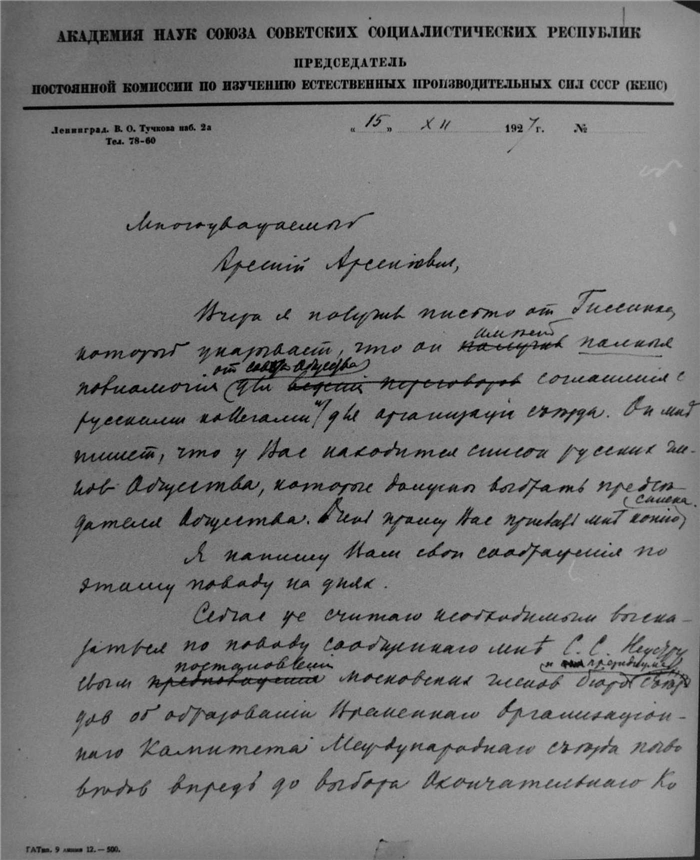 АКАДЕМИЯ НАУК СОЮЗА СОВЕТСКИХ СОЦИАЛИСТИЧЕСКИХ РЕСПУБЛИК
ПРЕДСЕДАТЕЛЬ
ПОСТОЯННОЙ КОМИССИИ ПО ИЗУЧЕНИЮ ЕСТЕСТВЕННЫХ ПРОИЗВОДИТЕЛЬНЫХ СИЛ СССР (КЕПС)
Ленинград. В. О. Тучкова наб. 2а
Тел. 78-60
„ 15 „ XII 1927 г. №
Многоуважаемый
Арсений Арсениевич,
Вчера я получил письмо от Гиссинка,
имеет
который указывает, что он получил полныя
от Общества
полномочия для ведения переговоров соглашения с
русскими коллегами для организации съезда. Он мне
пишет, что у Вас находится список русских чле-
нов Общества, которые должны выбрать предсе-
списка.
дателя Общества. Очень прошу Вас прислать мне копию
Я напишу Вам свои соображения по
этому поводу на днях.
Сейчас же считаю необходимым выска-
заться по поводу сообщеннаго мне С. С. Неустру
постановлений и президиума
евым московских членов бюро съез
дов об образовании Временнаго Организацион-
наго Комитета Международнаго съезда почво
ведов впредь до выбора Окончательнаго Ко
ГАТип. 9 линия 12. — 500.